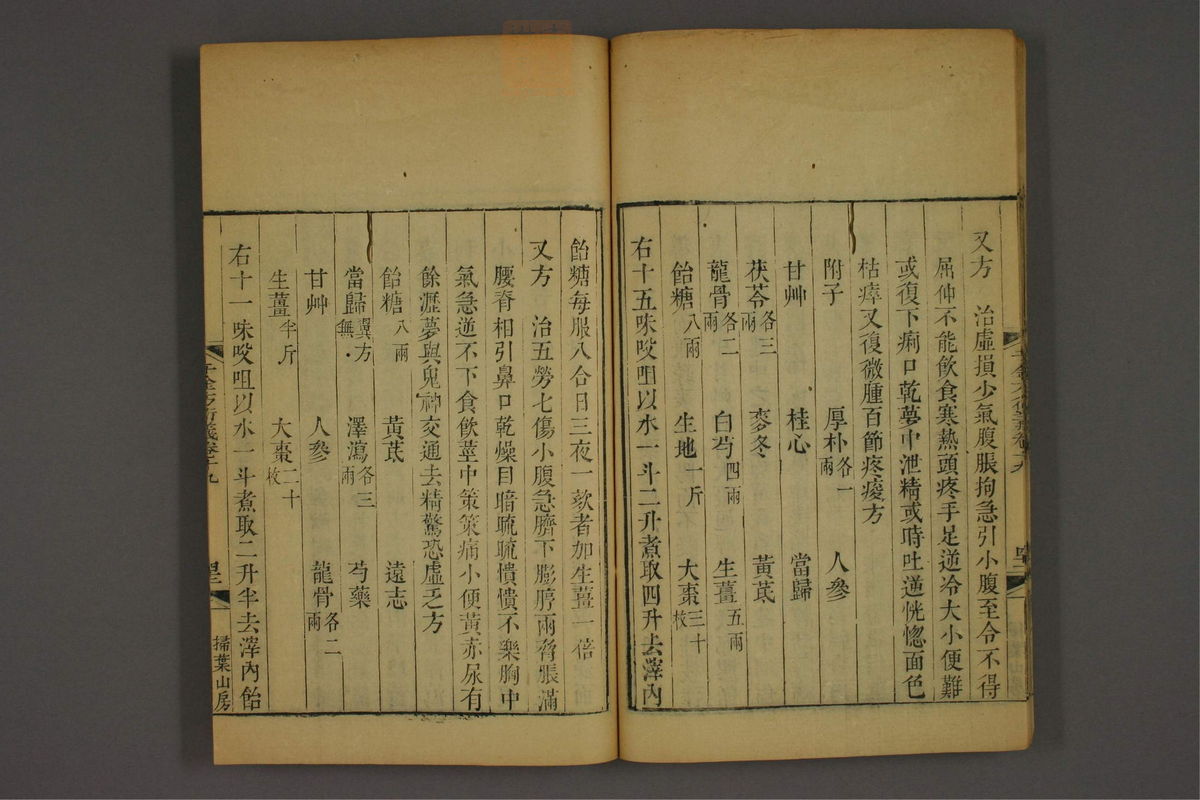 又方　治虛損少氣腹脹拘急引小腹至令不得
屈伸不能飲食寒熱頭疼手足逆冷大小便難
或復下痢口乾夢中泄精或時吐逆恍惚面色
枯瘁又復微腫百節疼痠方
附子　厚朴各一兩　人參
甘艸　桂心　當歸
茯苓各三兩　麥冬　黃芪
龍骨各二兩　白芍四兩　生薑五兩
飴糖八兩　生地一斤　大棗三十枚
右十五味㕮咀以水一斗二升煮取四升去滓內
飴糖每服八合日三夜一欬者加生薑一倍
又方　治五勞七傷小腹急臍下膨脝兩脅脹滿
腰脊相引鼻口乾燥目暗䀮䀮憒憒不樂胸中
氣急逆不下食飲莖中策策痛小便黃赤尿有
餘瀝夢與鬼神交通去精驚恐虛乏方
飴糖八兩　黃芪　遠志
當歸翼方無．　澤瀉各三兩　芍藥
甘艸　人參　龍骨各二兩
生薑半斤　大棗二十枚
右十一味㕮咀以水一斗煮取二升半去滓內飴
千金方衍義卷十九
掃葉山房